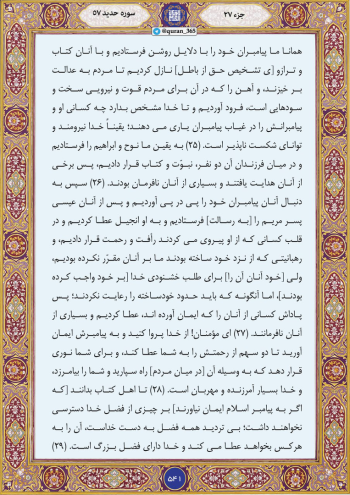 جزء ۲۷
سوره حدید ۵۷
@quran_365
همانا ما پیامبران خود را با دلایل روشن فرستادیم و با آنان کتاب
و ترازو [ی تشخیص حق از باطل] نازل کردیم تا مردم به عدالت
بر خیزند، و آهن را که در آن برای مردم قوت و نیرویی سخت و
سودهایی است، فرود آوردیم و تا خدا مشخص بدارد چه کسانی او و
پیامبرانش را در غیاب پیامبران یاری می دهند؛ یقیناً خدا نیرومند و
توانای شکست ناپذیر است. (۲۵) به یقین ما نوح و ابراهیم را فرستادیم
و در میان فرزندان آن دو نفر، نبوّت و کتاب قرار دادیم، پس برخی
از آنان هدایت یافتند و بسیاری از آنان نافرمان بودند. (۲۶) سپس به
دنبال آنان پیامبران خود را پی در پی آوردیم و پس از آنان عیسی
پسر مریم را [به رسالت] فرستادیم و به او انجیل عطا کردیم و در
قلب کسانی که از او پیروی می کردند رأفت و رحمت قرار دادیم، و
رهبانیتی که از نزد خود ساخته بودند ما بر آنان مقرّر نکرده بودیم،
ولی [خود آنان آن را] برای طلب خشنودی خدا [بر خود واجب کرده
بودند]، اما آنگونه که باید حدود خودساخته را رعایت نکردند؛ پس
پاداش کسانی از آنان را که ایمان آورده اند، عطا کردیم و بسیاری از
آنان نافرمانند. (۲۷) ای مؤمنان! از خدا پروا کنید و به پیامبرش ایمان
آورید تا دو سهم از رحمتش را به شما عطا کند، و برای شما نوری
قرار دهد که به وسیله آن [در میان مردم] راه سپارید و شما را بیامرزد،
و خدا بسیار آمرزنده و مهربان است. (۲۸) تا اهل کتاب بدانند [که
اگر به پیامبر اسلام ایمان نیاورند] بر چیزی از فضل خدا دسترسی
نخواهند داشت؛ بی تردید همه فضل به دست خداست، آن را به
هرکس بخواهد عطا می کند و خدا دارای فضل بزرگ است. (۲۹)
۵۴۱